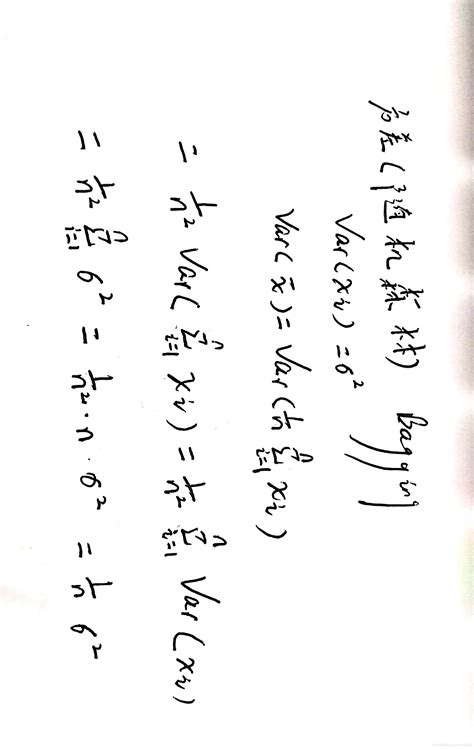 方差(随机森林) Bagging
Var(xi) = σ²
Var(x̄) = Var(1/n Σ_{i=1}^{n} xi)
= 1/n² Var(Σ_{i=1}^{n} xi) = 1/n² Σ_{i=1}^{n} Var(xi)
= 1/n² Σ_{i=1}^{n} σ² = 1/n² · n · σ² = 1/n σ²